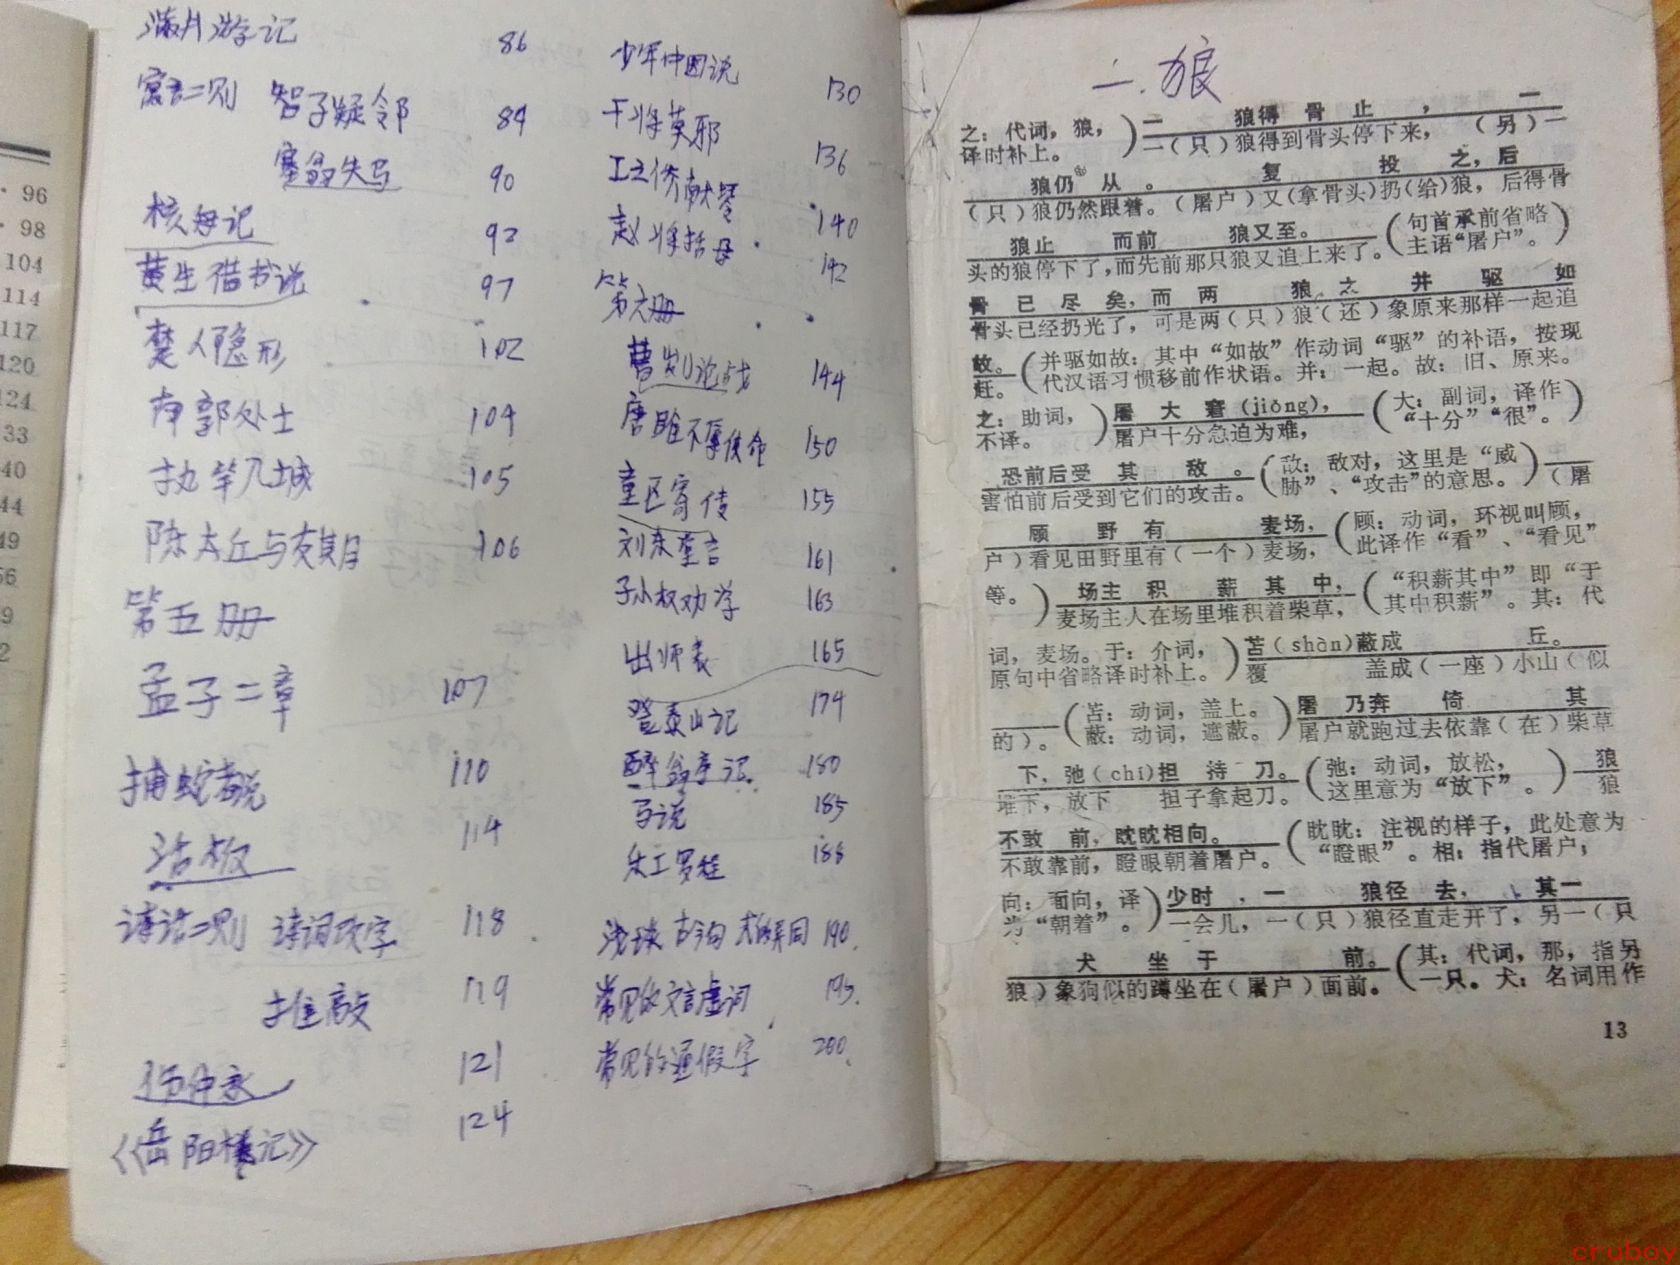 满井游记 86
寓言二则 智子疑邻 89
塞翁失马 90
核舟记 92
黄生借书说 97
楚人隐形 102
南郭处士 104
执竿入城 105
陈太丘与友期 106
第五册
孟子二章 107
捕蛇者说 110
活板 114
诗话二则 诗词改字 118
推敲 119
伤仲永 121
《岳阳楼记》 124
少年中国说 130
干将莫邪 136
工之侨献琴 140
赵将括母 142
第六册
曹刿论战 144
唐雎不辱使命 150
童区寄传 155
刘东堂言 161
孙权劝学 163
出师表 165
登泰山记 174
醉翁亭记 180
马说 185
朱工罗程 188
古今句式的异同 190
常见的文言虚词 195
常见的通假字 200
96
98
104
114
117
120
124
33
40
44
49
56
9
2
二.狼
之：代词，狼，
译时补上。
一 狼得 骨 止 ， 一
一(只)狼得到骨头停下来， (另)一
狼仍 从 。 复 投 之，后
(只)狼仍然跟着。(屠户)又(拿骨头)扔(给)狼，后得骨
狼止 而前 狼又至。
头的狼停下了，而先前那只狼又追上来了。
句首承前省略
主语“屠户”。
骨 已 尽 矣，而 两 狼 之 并 驱 如
骨头已经扔光了，可是两(只)狼(还)象原来那样一起追
故。
赶。
并驱如故：其中“如故”作动词“驱”的补语，按现
代汉语习惯移前作状语。并：一起。故：旧、原来。
之：助词，
不译。
屠 大 窘(jiǒng)，
屠户十分急迫为难，
大：副词，译作
“十分”“很”。
恐前后受 其 敌 。
害怕前后受到它们的攻击。
敌：敌对，这里是“威
胁”、“攻击”的意思。
(屠
顾 野 有 麦场，
户)看见田野里有(一个)麦场，
顾：动词，环视叫顾，
此译作“看”、“看见”
等。
场主 积 薪 其 中，
麦场主人在场里堆积着柴草，
“积薪其中”即“于
其中积薪”。其：代
词，麦场。于：介词，
原句中省略译时补上。
苫(shàn)蔽成 丘。
覆 盖成(一座)小山(似
的)。
苫：动词，盖上。
蔽：动词，遮蔽。
屠 乃奔 倚 其
屠户就跑过去依靠(在)柴草
下，弛(chí)担 持 刀。
堆下，放下 担子拿起刀。
弛：动词，放松，
这里意为“放下”。
狼
狼
不敢 前，眈眈相向。
不敢靠前，瞪眼朝着屠户。
眈眈：注视的样子，此处意为
“瞪眼”。相：指代屠户；
向：面向，译
为“朝着”。
少时 ，一 狼径 去， 其一
一会儿，一(只)狼径直走开了，另一(只
犬 坐 于 前。
狼)象狗似的蹲坐在(屠户)面前。
其：代词，那，指另
一只。犬：名词用作
13
crubov